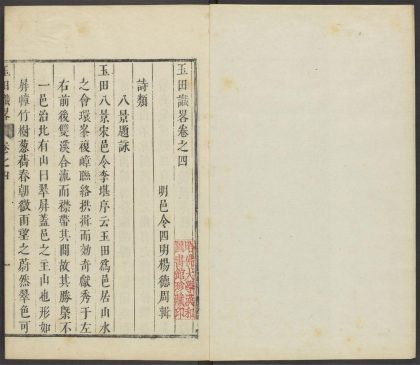 玉田識畧卷之四
明邑令四明楊德周輯
詩類
八景題詠
玉田八景宋邑令李堪序云玉田為邑居山水
之會環峯複嶂聯絡拱揖而効奇獻秀于左
右前後雙溪合流而襟帶其間故其勝槩不
一邑治北有山曰翠屏蓋邑之主山也形如
屏幛竹樹蔥蒨春朝徹雨望之蔚然翠色可
玉田識畧
卷之四
一
哈佛大學漢和
圖書館珍藏印